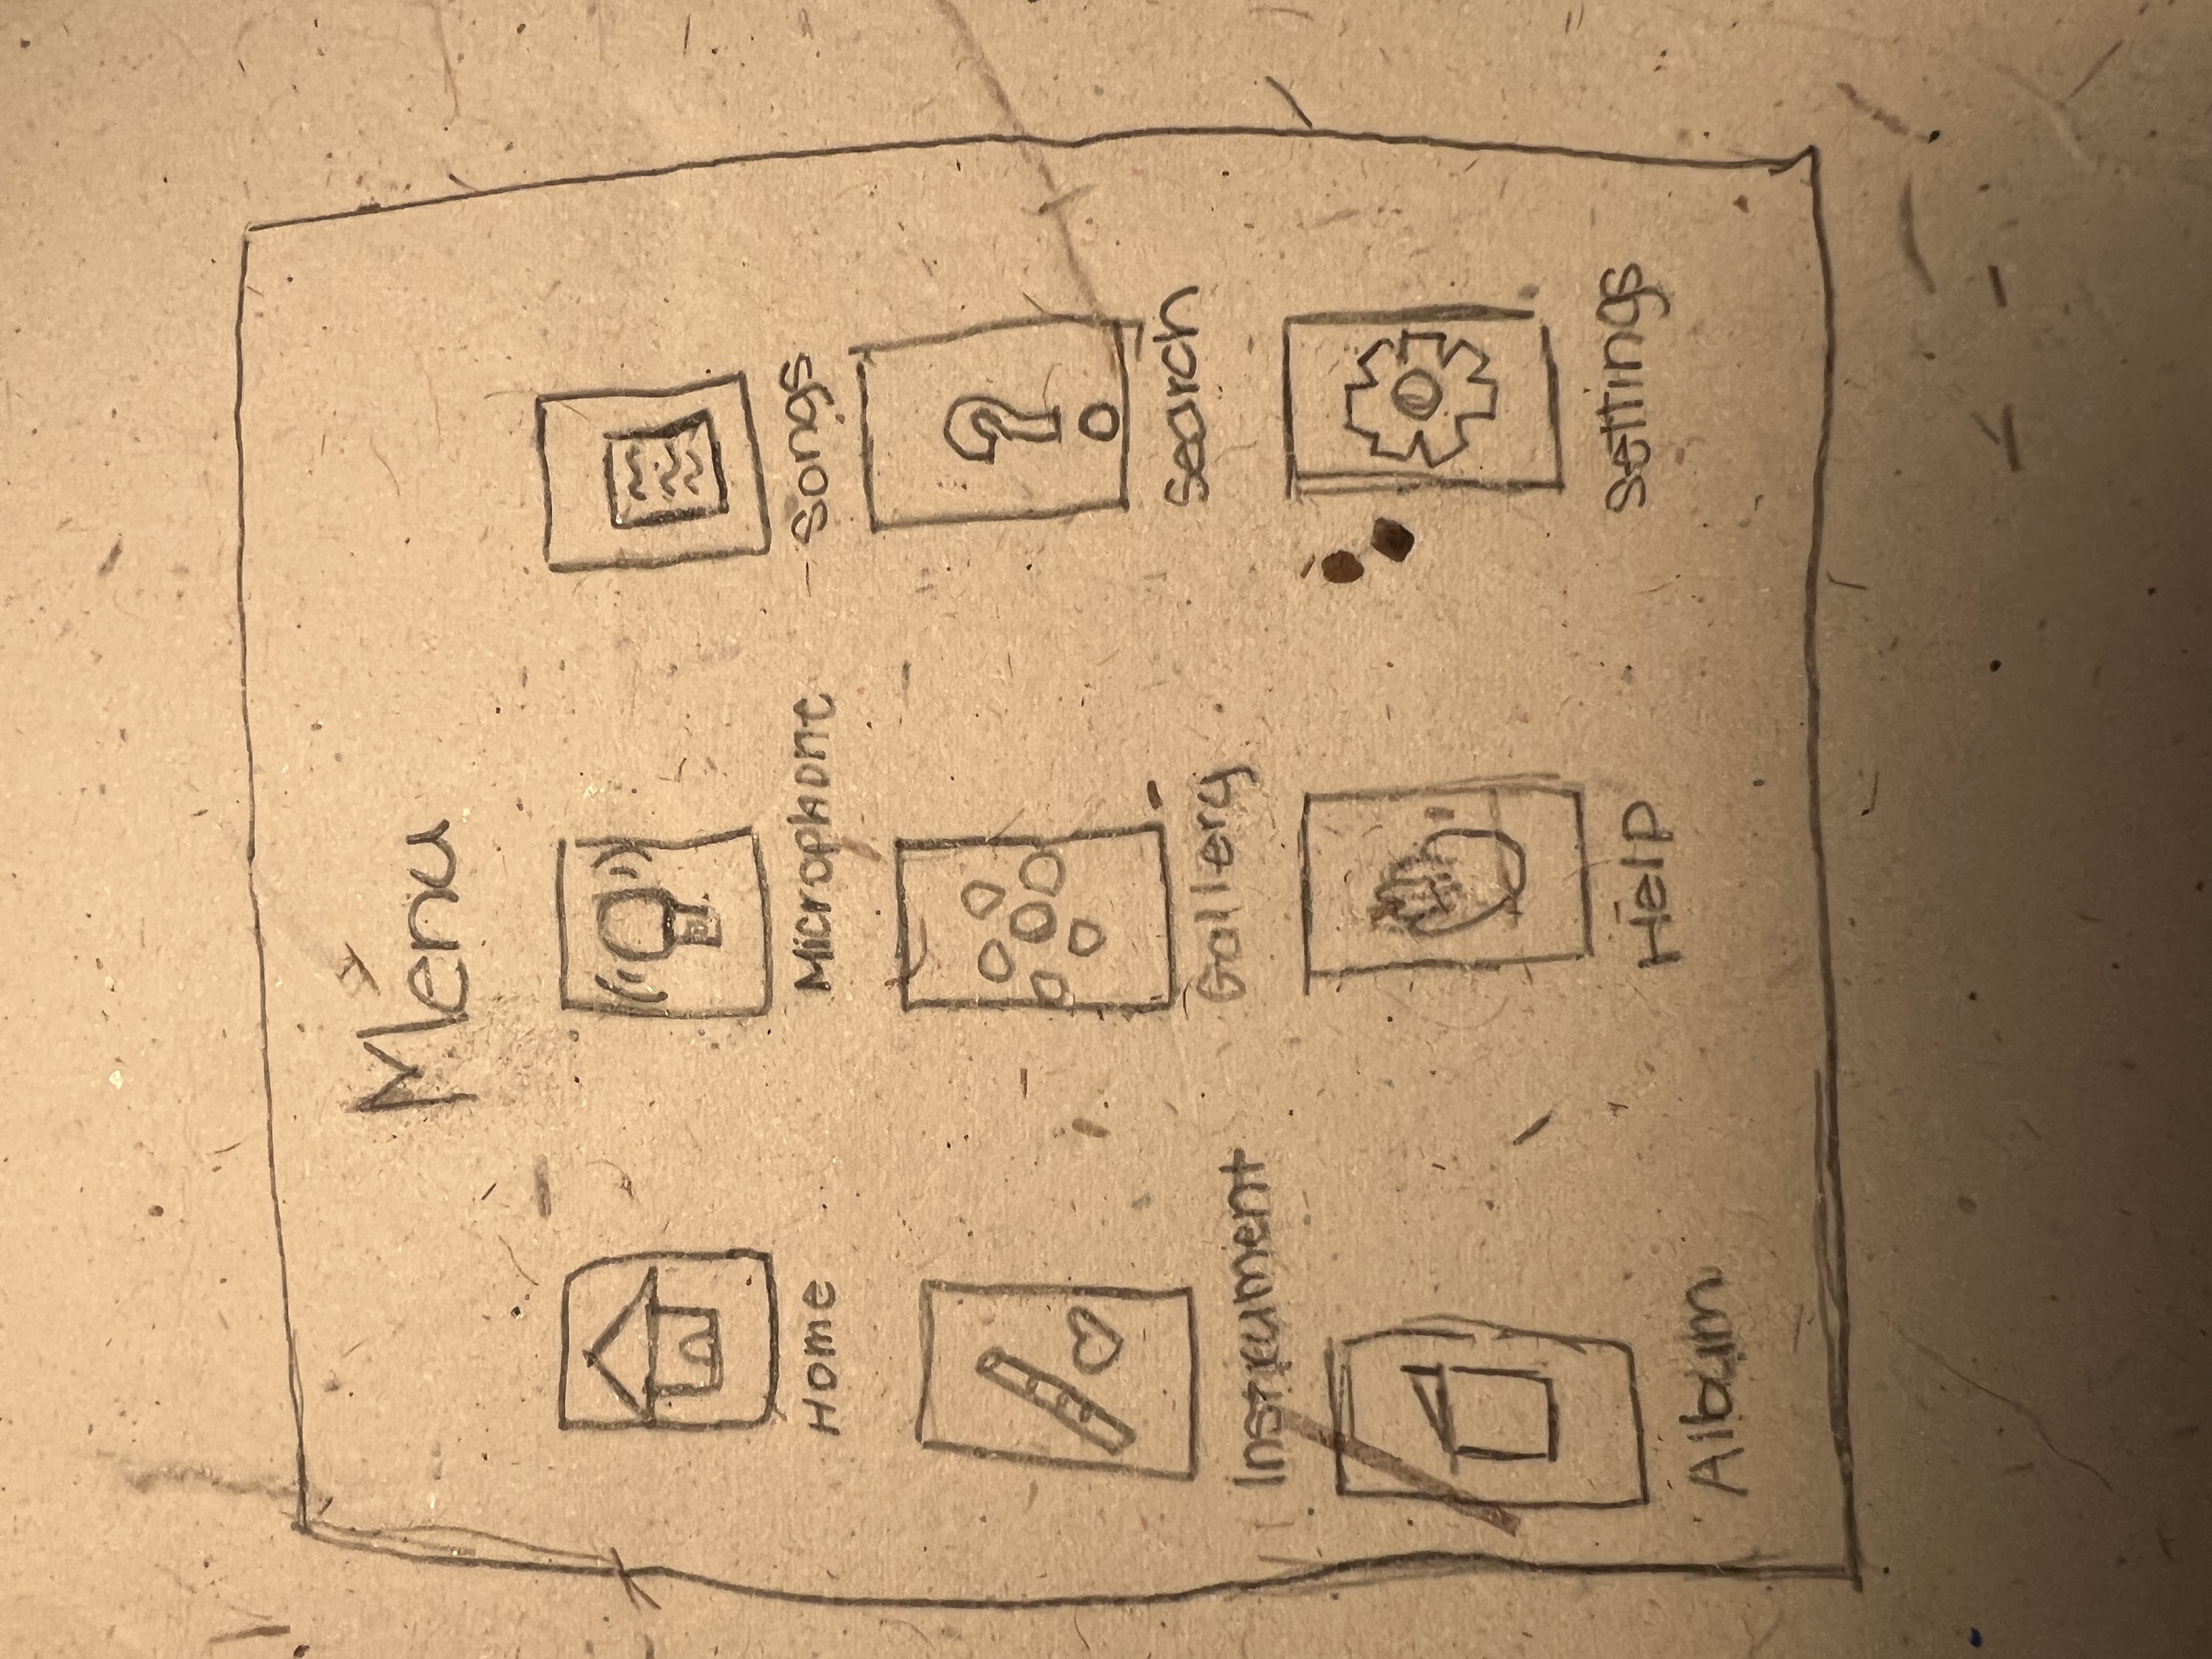 Ménu
Home Microphone Songs
Instrument Gallery Search
Album Help Settings